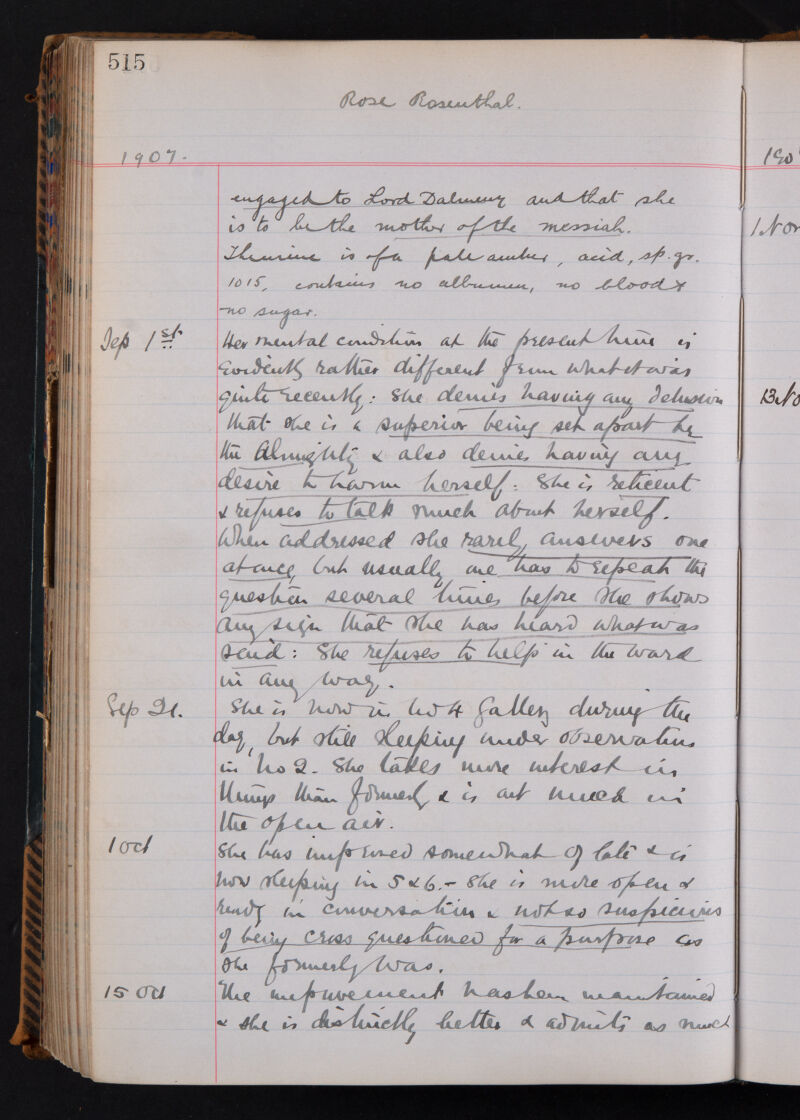 515
Rose Rosenthal.
1907.
190
engaged to Lord Dalmeny and that she
is to be the mother of the messiah.
1 Nov
The urine is of a pale amber, acid, sp. gr.
1015, contains no albumen, no blood &
no sugar.
Sep 1st Her mental condition at the present time is
evidently rather different from what it was
quite recently: She denies having any delusion
13 No
that she is a superior being set apart by
the Almighty & also denies having any
desire to harm herself: She is reticent
& refuses to talk much about herself.
When addressed she rarely answers one
at once, but usually one has to repeat the
question several times before she shows
any sign that she has heard what was
said: She refuses to help in the ward
in any way.
Sep 21. She is now in No 4 Gallery during the
day, but still sleeping under observation
in No 2. She takes more interest in
things than formerly & is out much in
the open air.
1 Oct She has improved somewhat of late & is
now sleeping in 5 & 6. - She is more open &
ready in conversation & not so suspicious
of being cross questioned for a purpose as
she formerly was.
15 Oct The improvement has been maintained
& she is distinctly better & admits as much